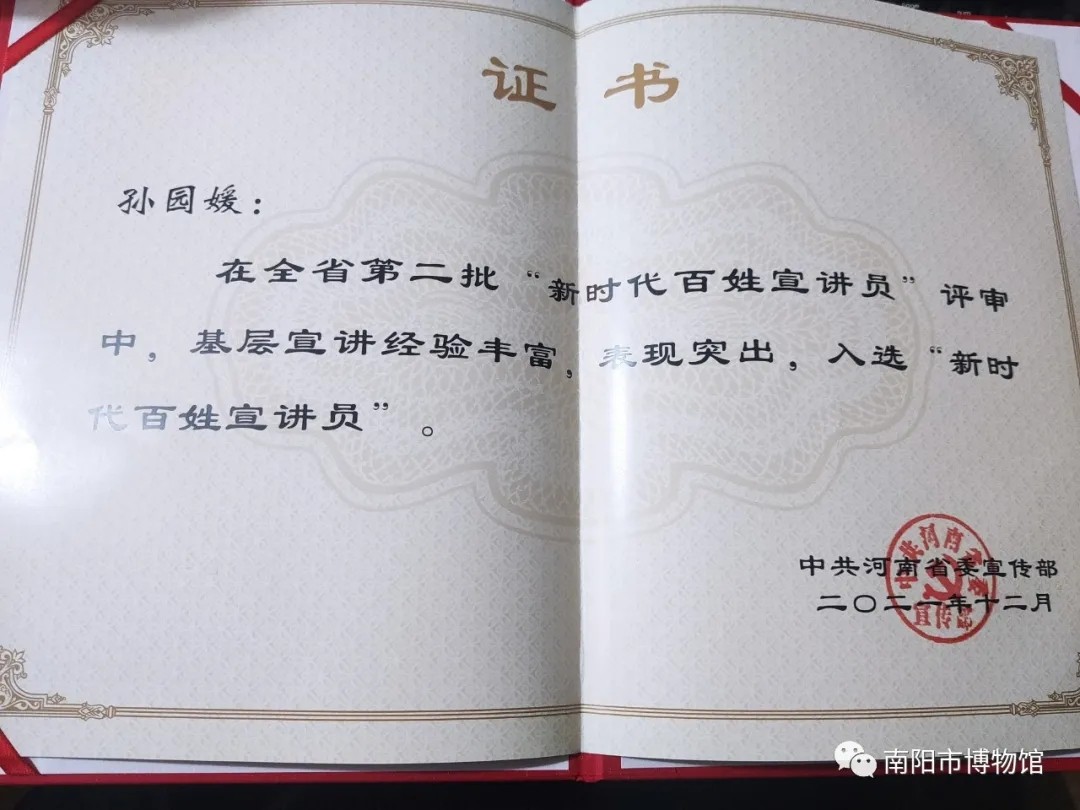 证书
孙园媛：
在全省第二批“新时代百姓宣讲员”评审
中，基层宣讲经验丰富，表现突出，入选“新时
代百姓宣讲员”。
中共河南省委宣传部
二〇二一年十二月
中共河南省委
宣传部
南阳市博物馆